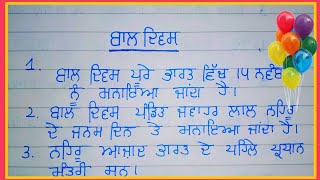 ਬਾਲ ਦਿਵਸ
1. ਬਾਲ ਦਿਵਸ ਪੂਰੇ ਭਾਰਤ ਵਿੱਚ 14 ਨਵੰਬਰ
ਨੂੰ ਮਨਾਇਆ ਜਾਂਦਾ ਹੈ।
2. ਬਾਲ ਦਿਵਸ ਪੰਡਿਤ ਜਵਾਹਰ ਲਾਲ ਨਹਿਰੂ
ਦੇ ਜਨਮ ਦਿਨ ਤੇ ਮਨਾਇਆ ਜਾਂਦਾ ਹੈ।
3. ਨਹਿਰੂ ਆਜ਼ਾਦ ਭਾਰਤ ਦੇ ਪਹਿਲੇ ਪ੍ਰਧਾਨ
ਮੰਤਰੀ ਸਨ।